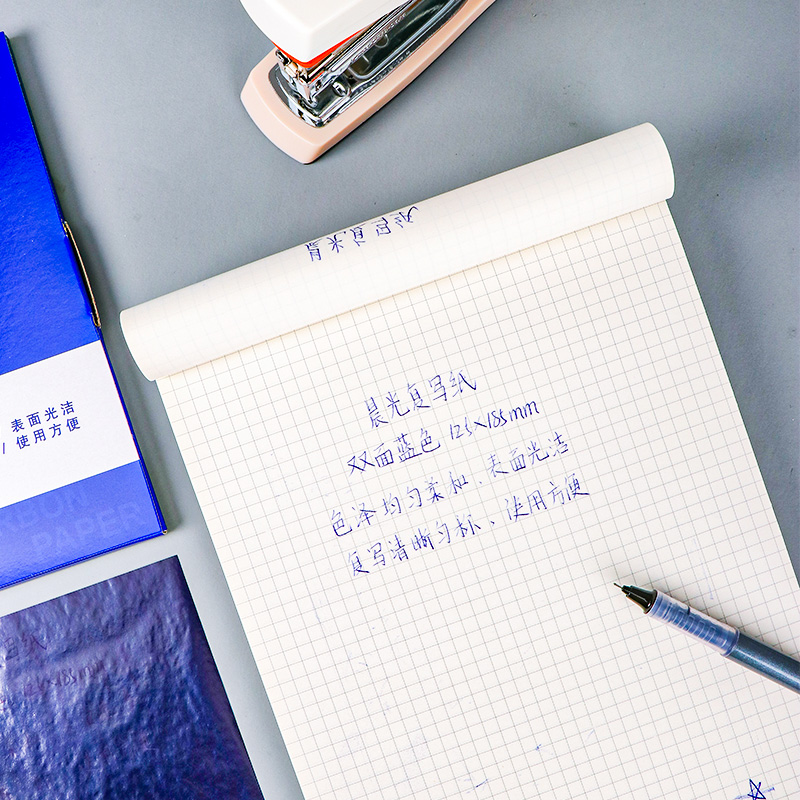 表面光洁
/ 使用方便
CARBON
PAPER
晨光复写纸
双面蓝色 125×185mm
色泽均匀柔和、表面光洁
复写清晰匀标、使用方便